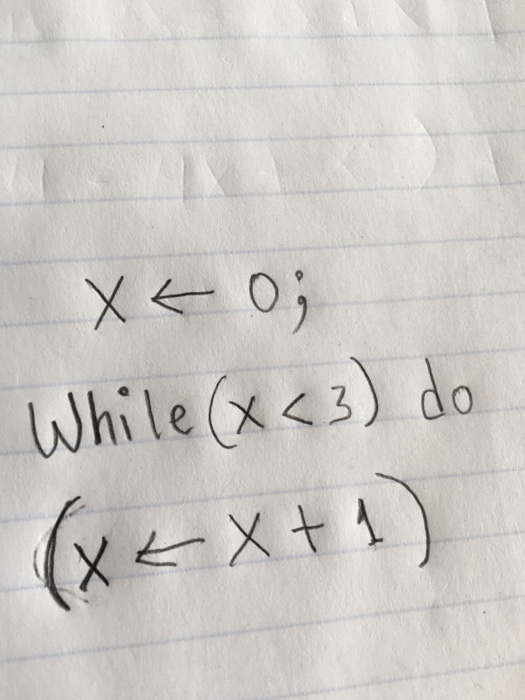 x ← 0;
While (x < 3) do
(x ← x + 1)